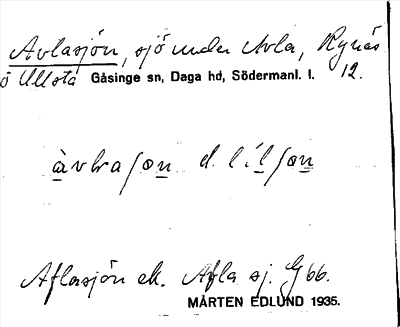 Avlasjön, sjö under Avla, Rynäs
ö Ullsta Gåsinge sn, Daga hd, Södermanl. l. 12.
àvlvaʃon d. l.
Aflasjön ek. Afla sj. G66.
MÅRTEN EDLUND 1935.